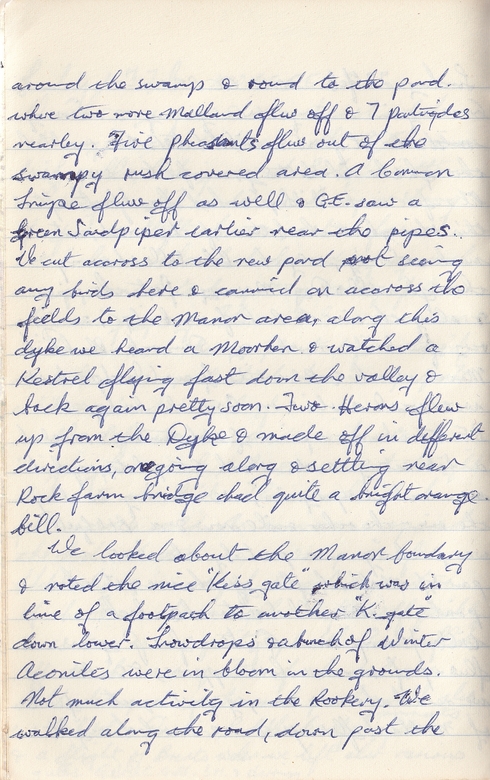 around the swamp & round to the pond.
where two more Mallard flew off & 7 Partridges
nearley. Five pheasants flew out of the
swampy rush covered area. A Common
Snipe flew off as well & G.E. saw a
Green Sandpiper earlier near the pipes.
We cut accross to the new pond not seeing
any birds here & carried on accross the
fields to the Manor area, along this
dyke we heard a Moorhen & watched a
Kestrel flying fast down the valley &
back again pretty soon. Two Herons flew
up from the Dyke & made off in different
directions, one going along & settling near
Rock farm bridge had quite a bright orange
bill.
We looked about the Manor boundary
& noted the nice "Kiss gate" which was in
line of a footpath to another "K. gate"
down lower. Snowdrops & a bunch of Winter
Aconites were in bloom in the grounds.
Not much activity in the Rookery. We
walked along the road, down past the